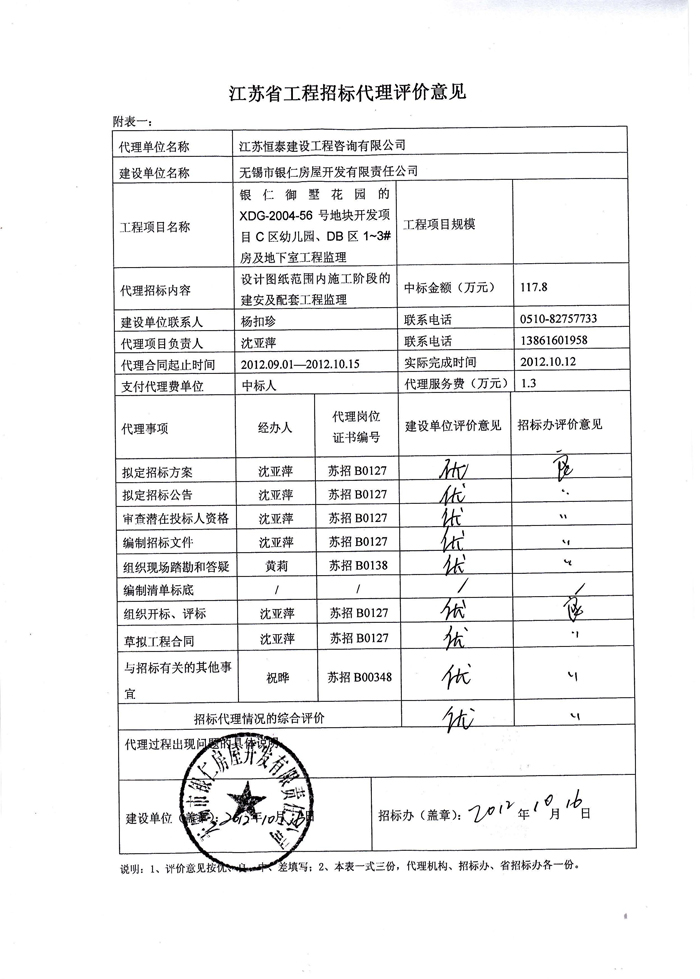 江苏省工程招标代理评价意见
附表一:
代理单位名称 江苏恒泰建设工程咨询有限公司
建设单位名称 无锡市银仁房屋开发有限责任公司
工程项目名称 银仁御墅花园的 工程项目规模
XDG-2004-56 号地块开发项
目 C 区幼儿园、DB 区 1~3#
房及地下室工程监理
代理招标内容 设计图纸范围内施工阶段的 中标金额（万元） 117.8
建安及配套工程监理
建设单位联系人 杨扣珍 联系电话 0510-82757733
代理项目负责人 沈亚萍 联系电话 13861601958
代理合同起止时间 2012.09.01—2012.10.15 实际完成时间 2012.10.12
支付代理费单位 中标人 代理服务费（万元） 1.3
代理事项 经办人 代理岗位 建设单位评价意见 招标办评价意见
证书编号
拟定招标方案 沈亚萍 苏招 B0127 优 良
拟定招标公告 沈亚萍 苏招 B0127 优 〃
审查潜在投标人资格 沈亚萍 苏招 B0127 优 〃
编制招标文件 沈亚萍 苏招 B0127 优 〃
组织现场踏勘和答疑 黄莉 苏招 B0138 优 〃
编制清单标底 / / / /
组织开标、评标 沈亚萍 苏招 B0127 优 良
草拟工程合同 沈亚萍 苏招 B0127 优 〃
与招标有关的其他事 祝晔 苏招 B00348 优 〃
宜
招标代理情况的综合评价 优 〃
代理过程出现问题的具体说明
无锡市银仁房屋开发有限责任公司
建设单位（盖章）: 2012年10月 日 招标办（盖章）: 2012 年 10 月 16 日
说明: 1、评价意见按优、良、中、差填写; 2、本表一式三份，代理机构、招标办、省招标办各一份。